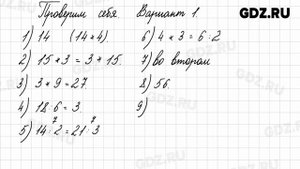 Проверим себя Вариант 1. GDZ.RU
1) 14 (14*4) 6) 4*3=6:2
2) 15*3=3*15. 7) во втором
3) 3*9=27. 8) 56.
4) 18:6=3. 9)
7 7
5) 14:2=21:3